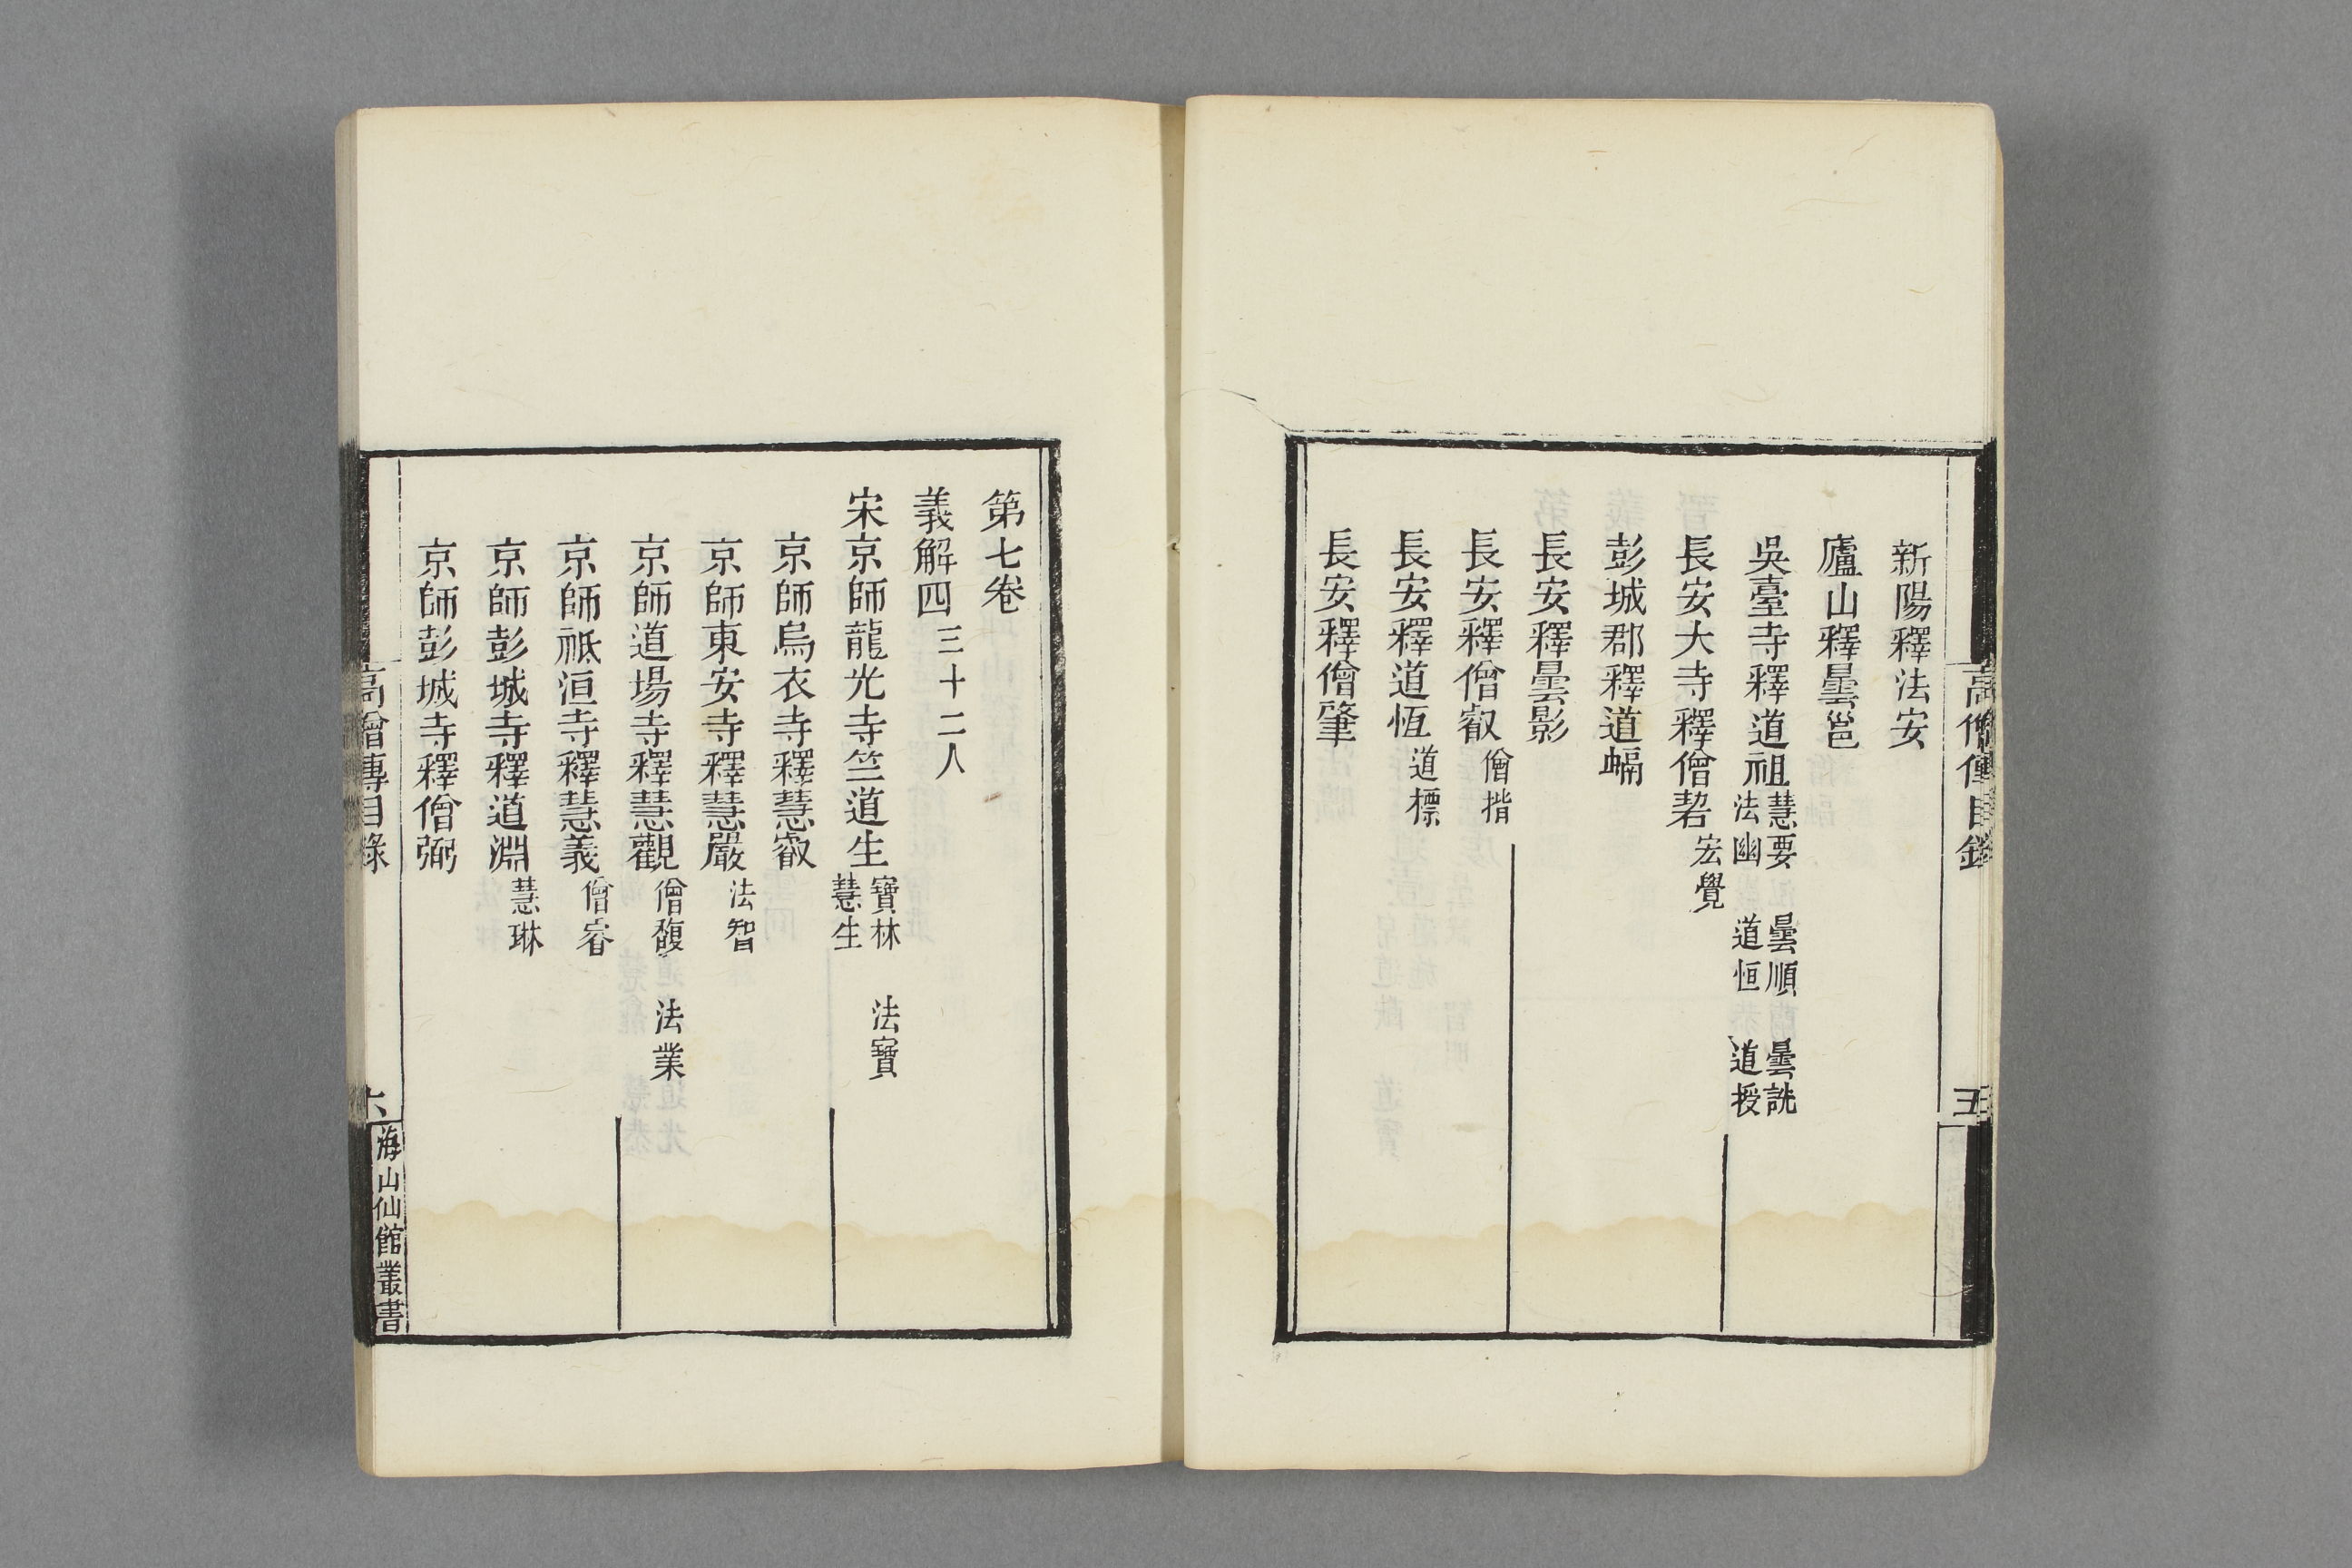 高僧傳目錄
五
新陽釋法安
廬山釋曇邕
吳臺寺釋道祖 慧要 曇順 曇詵
法幽 道恒 道授
長安大寺釋僧䂮 宏覺
彭城郡釋道融
長安釋曇影
長安釋僧叡 僧揩
長安釋道恆 道標
長安釋僧肇
第七卷
義解四 三十二人
宋京師龍光寺竺道生 寶林 法寶
慧生
京師烏衣寺釋慧叡
京師東安寺釋慧嚴 法智
京師道場寺釋慧觀 僧馥 法業
京師祗洹寺釋慧義 僧睿
京師彭城寺釋道淵 慧琳
京師彭城寺釋僧弼
高僧傳目錄
六
海山仙館叢書